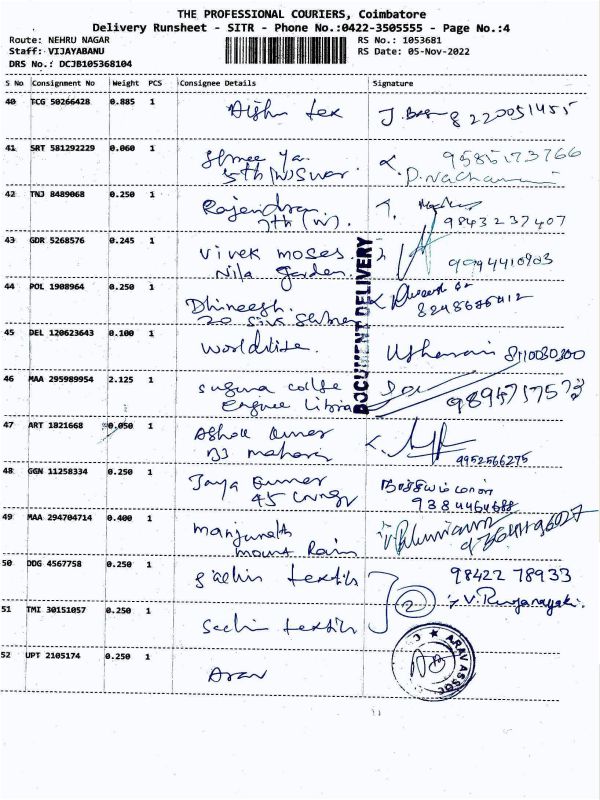 THE PROFESSIONAL COURIERS, Coimbatore
Delivery Runsheet - SITR - Phone No.:0422-3505555 - Page No.:4
Route: NEHRU NAGAR RS No.: 1053681
Staff: VIJAYABANU RS Date: 05-Nov-2022
DRS No.: DCJB105368104
S No Consignment No Weight PCS Consignee Details Signature
40 TCG 50266428 0.885 1 Aishu tex 8220051455
41 SRT 581292229 0.060 1 Shree 9585173766
5th
42 TNJ 8489068 0.250 1 Rajendran
7th (W) 9843237407
43 GDR 5268576 0.245 1 Vivek moses 9994410903
Nila Garden
44 POL 1908964 0.250 1 Dhineesh
20 Siva 8248686412
45 DEL 120623643 0.100 1 Worldwide
46 MAA 295989954 2.125 1 Suguna
DOCUMENT DELIVERY
47 ART 1821668 0.050 1 Ashok Kumar
B3 9952566275
48 GGN 11258334 0.250 1 Jaya Kumar
45 9384464688
49 MAA 294704714 0.400 1 Manjunath
mount Rain
50 DDG 4567758 0.250 1 Sachin textils 98422 78933
2
51 TMI 30151057 0.250 1 Sachin textils
52 UPT 2105174 0.250 1 Arav
ARAV ASSOC